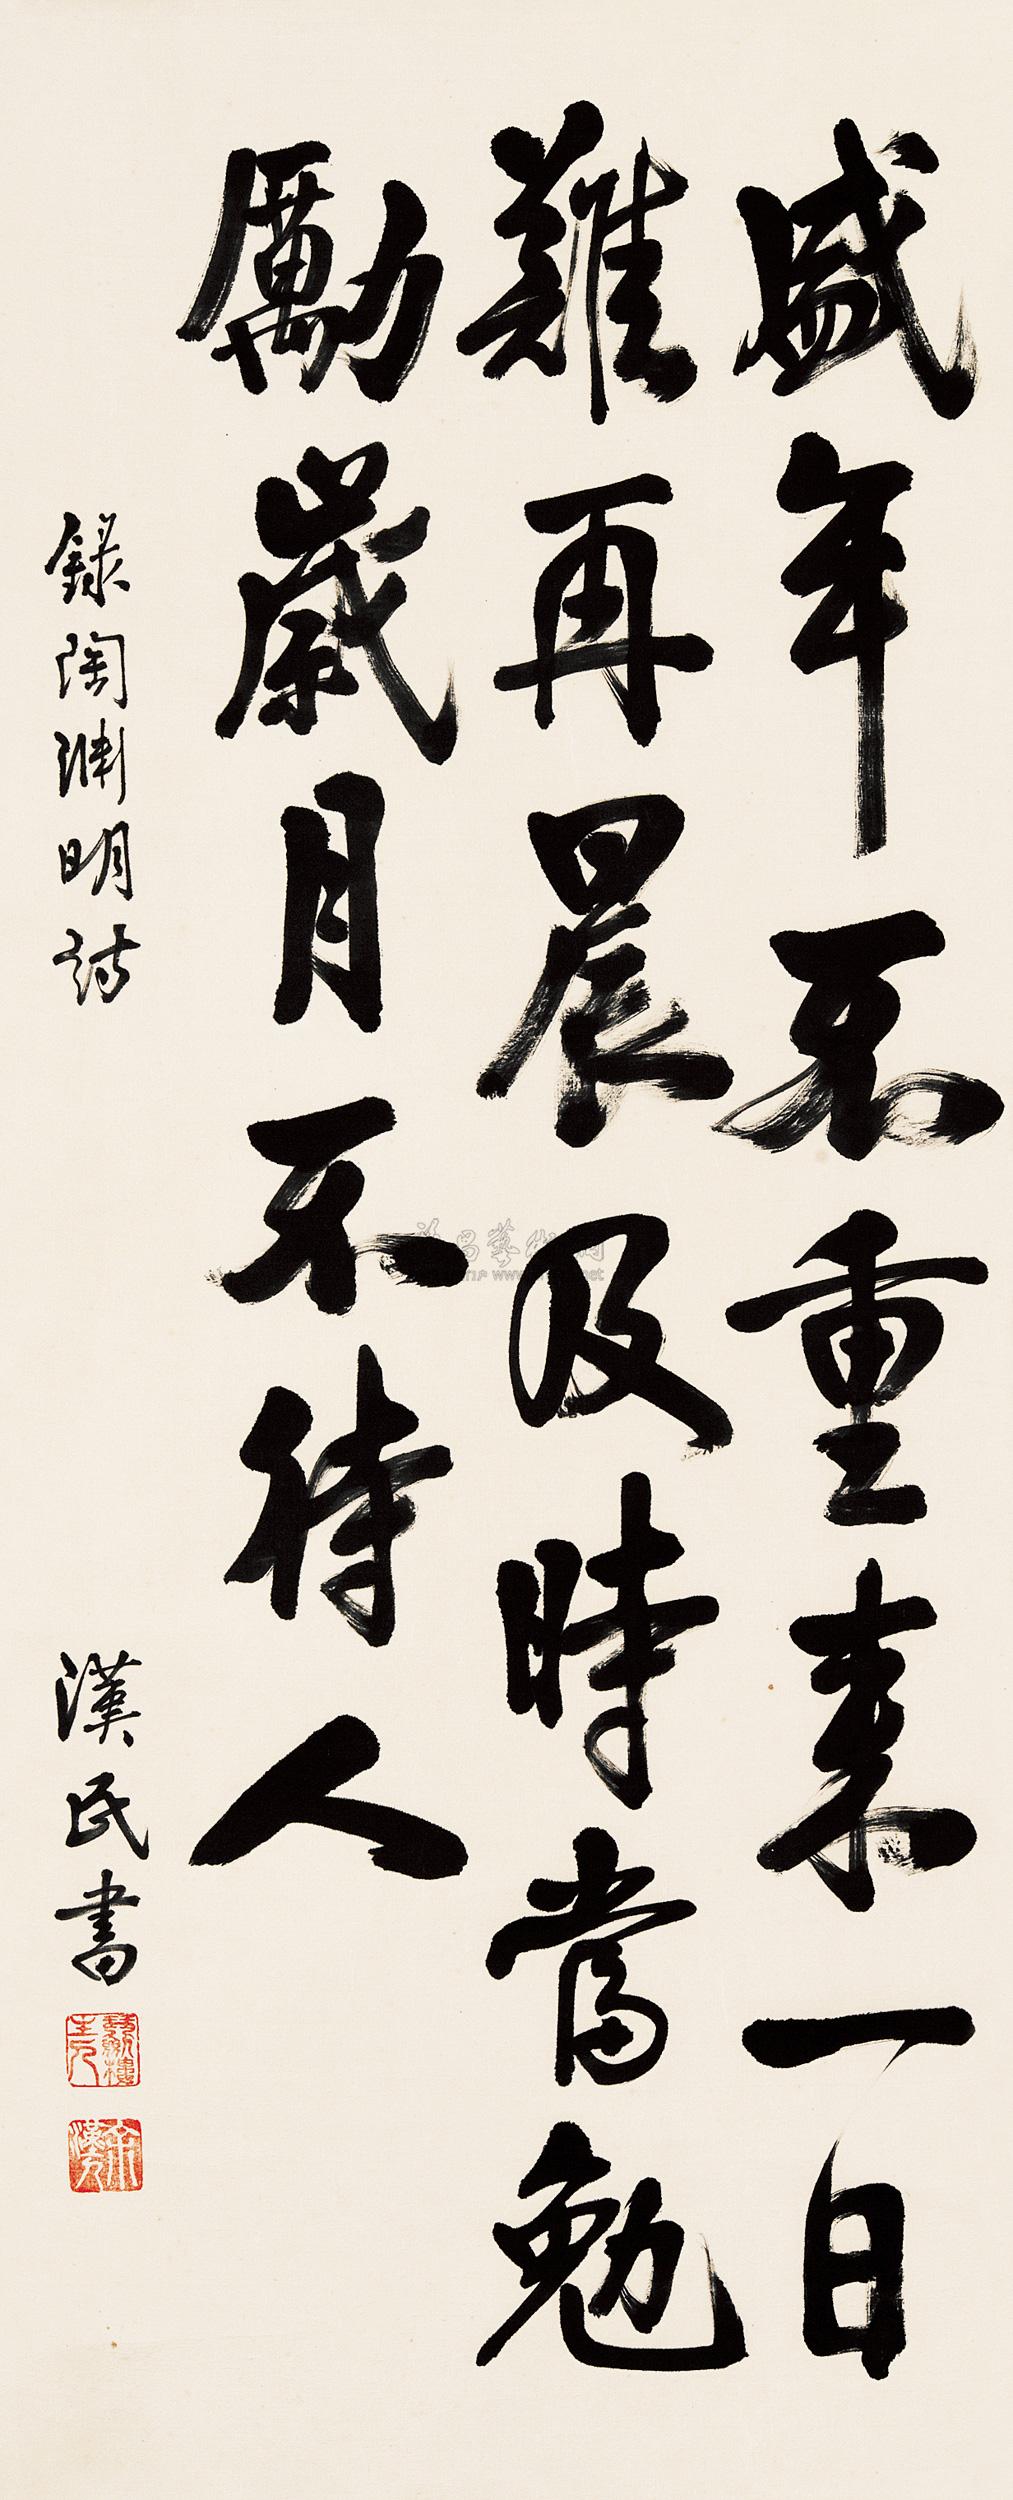 盛年不重来一日
難再晨及時當勉
勵歲月不待人
錄陶淵明詩
漢民書